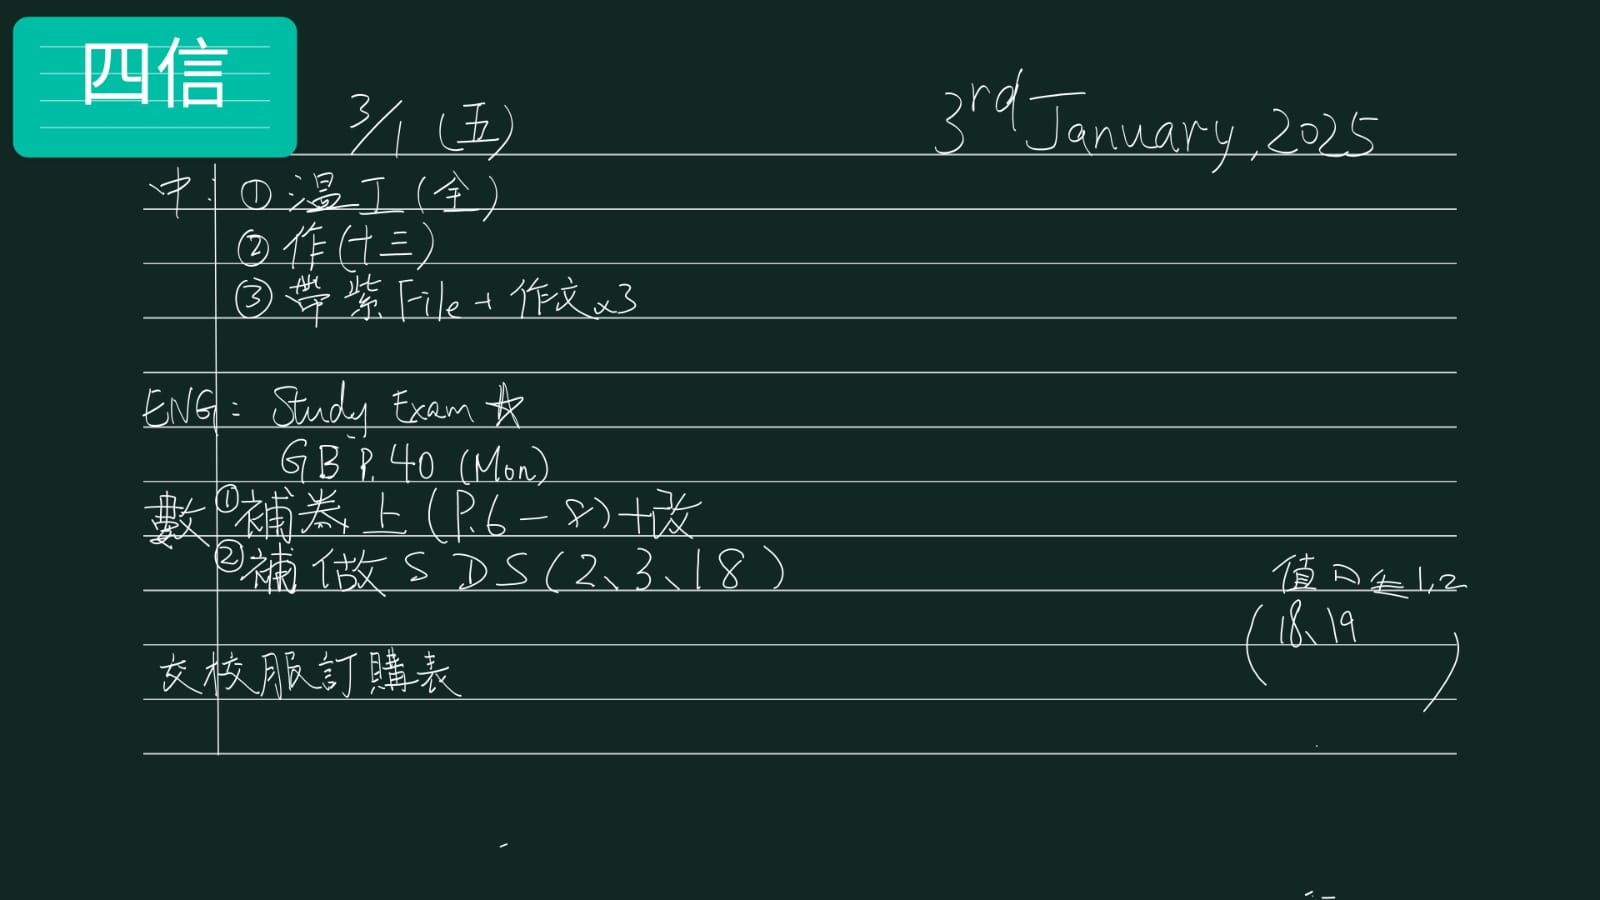 四信
3/1 (五)
3rd January, 2025
中: ① 温工(全)
② 作(十三)
③ 帶紫File + 作文x3
ENG: Study Exam ☆
GB P.40 (Mon)
數 ①補卷上(P.6-8)+改
②補做SDS(2、3、18)
值日生1,2
(18、19)
交校服訂購表